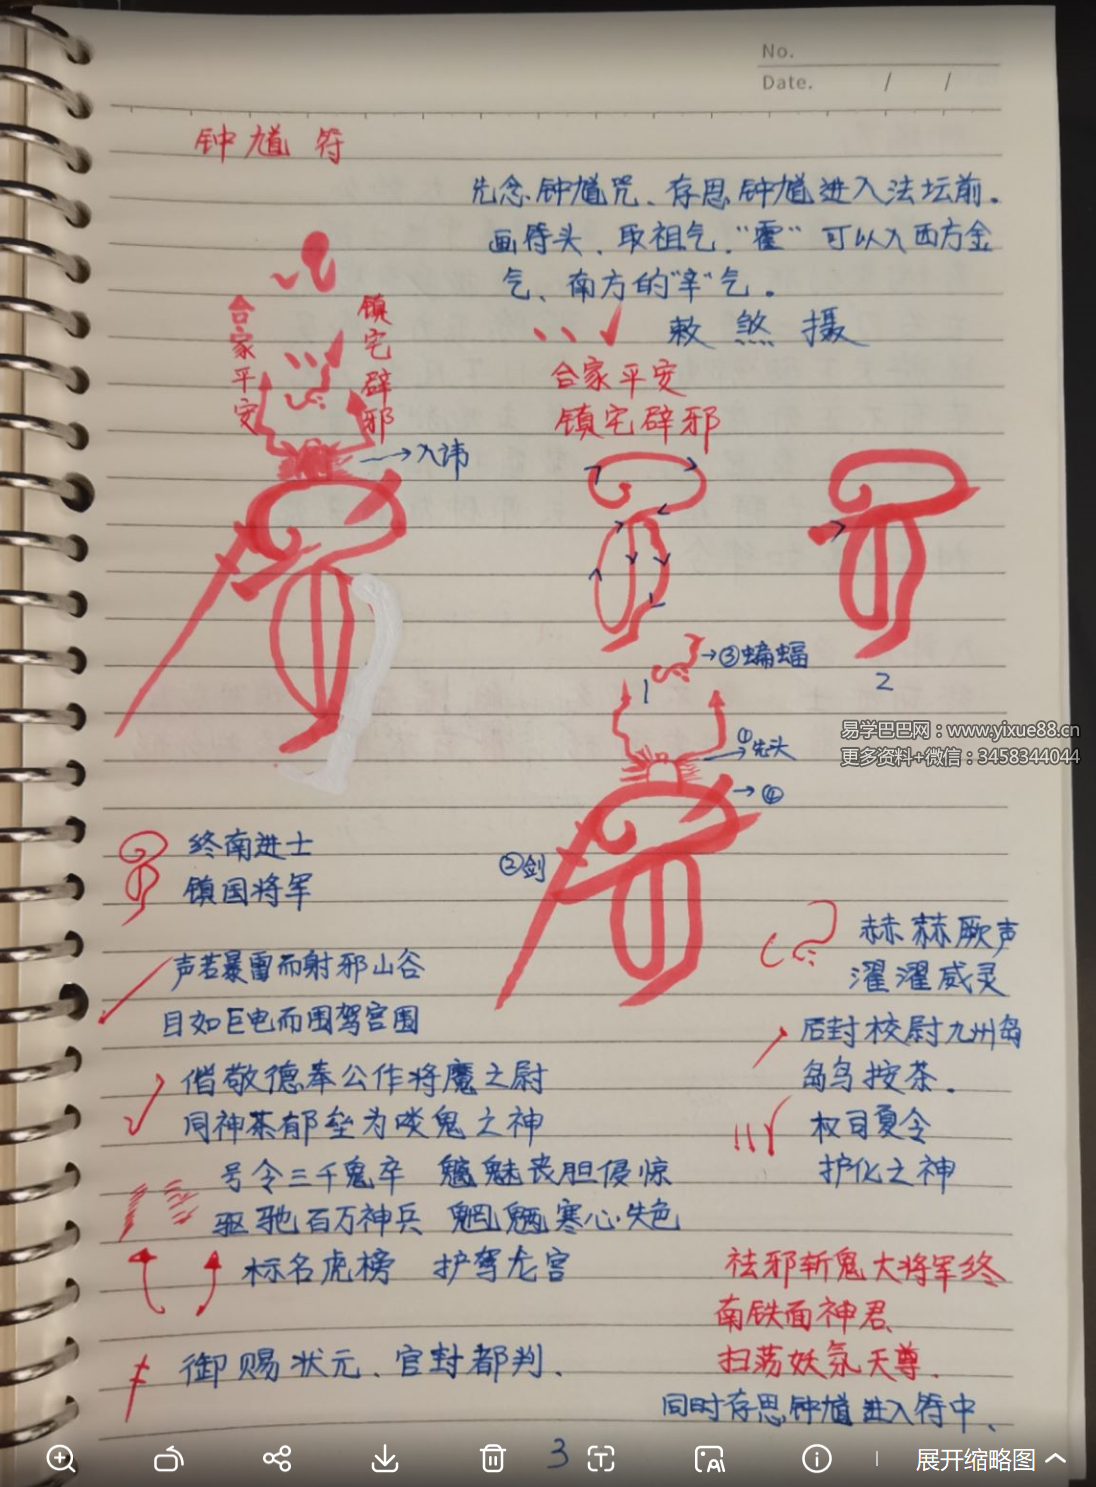 No.
Date. / /
钟馗符
先念钟馗咒、存思钟馗进入法坛前。
画符头、取祖气."霍"可以入西方金
气、南方的"辛"气。
敕 煞 摄
合家平安
镇宅辟邪
合家平安
镇宅辟邪
→入讳
1
2
→③蝙蝠
①先头
→④
②剑
易学巴巴网：www.yixue88.cn
更多资料+微信：3458344044
终南进士
镇国将军
声若暴雷而射邪山谷
目如巨电而围驾宫围
偕敬德奉公作将魔之尉
同神荼郁垒为啖鬼之神
号令三千鬼卒 魑魅丧胆侵惊
驱驰百万神兵 魍魉寒心失色
标名虎榜 护驾龙宫
御赐状元、官封都判、
赫赫厥声
濯濯威灵
后封校尉九州岛
岛鸟按茶.
权司夏令
护化之神
祛邪斩鬼大将军终
南铁面神君
扫荡妖氛天尊.
同时存思钟馗进入符中、
3
展开缩略图